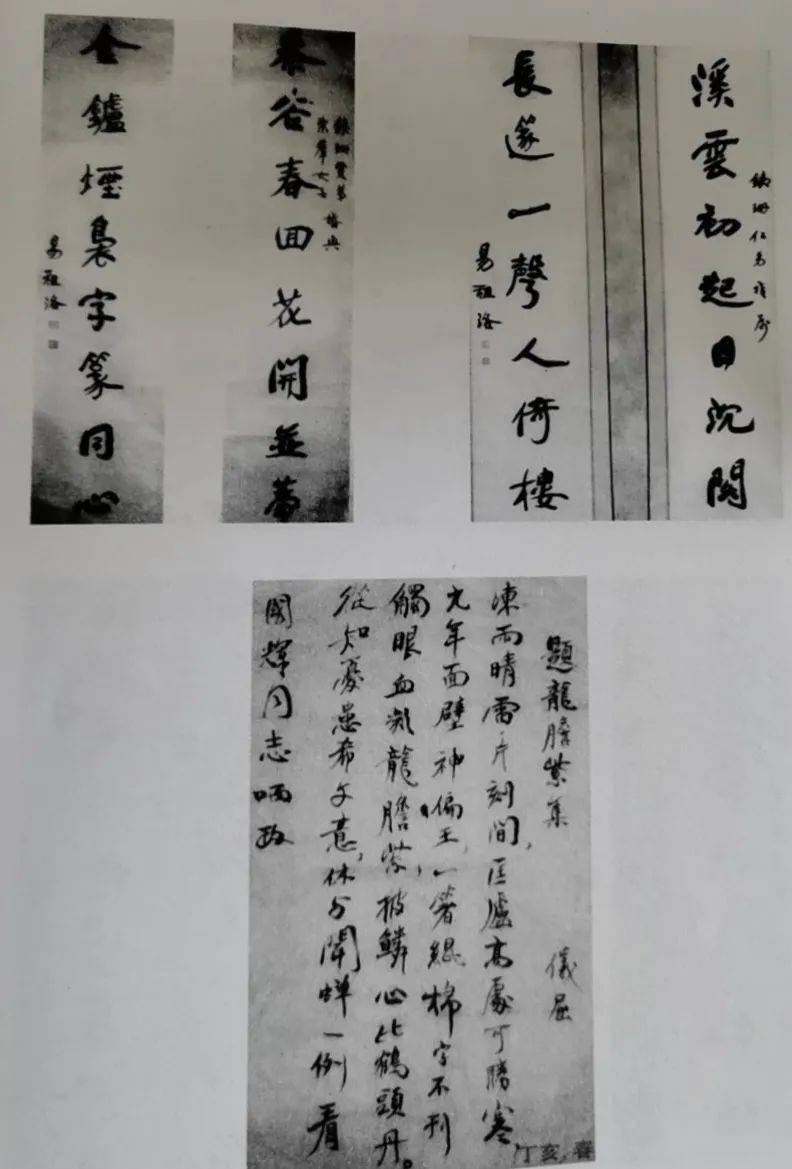 溪雲初起日沉閣
長篴一聲人倚樓
易祖洛
黍谷春回花開並蒂
金鑪煙裊字篆同心
易祖洛
題龍膽紫集 儀屈
凍雨晴雷片刻間，匡廬高處可勝寒
九年面壁神偏王，一箸棉字不刊
觸眼血凝龍膽紫，披鱗心比鶴頭丹。
從知憂患希文意，休與聞蟬一例看
國輝同志哂政
丁亥.春